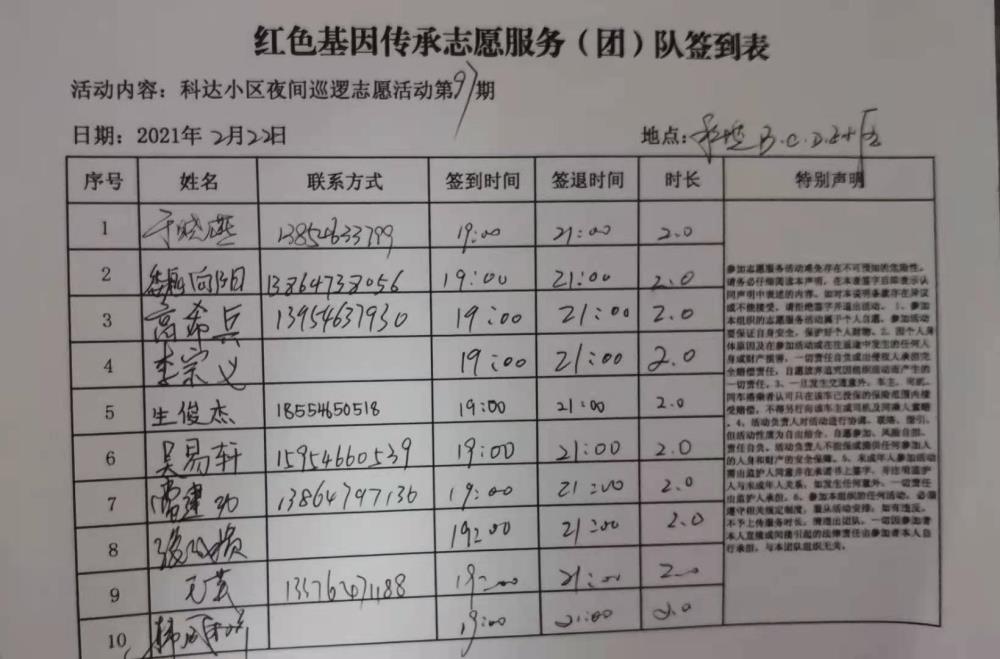 红色基因传承志愿服务（团）队签到表
活动内容：科达小区夜间巡逻志愿活动第97期
日期：2021年2月22日 地点：科达B.C.D.E小区
序号 姓名 联系方式 签到时间 签退时间 时长 特别声明
1 于晓燕 13854633799 19:00 21:00 2.0
2 魏向阳 13864738056 19:00 21:00 2.0
3 高希兵 13954637930 19:00 21:00 2.0
4 李宗义 19:00 21:00 2.0
5 生俊杰 18554650518 19:00 21:00 2.0
6 吴易轩 15954660539 19:00 21:00 2.0
7 常建功 13864797136 19:00 21:00 2.0
8 19:00 21:00 2.0
9 19:00 21:00 2.0
10 19:00 21:00 2.0
参加志愿服务活动难免存在不可预知的危险性，
请务必仔细阅读本声明，在本表签字后即表示认
同声明中表述的内容。如对本说明备案存在异议
或不能接受，请拒绝签字并退出活动。1、参加
本组织的志愿服务活动属于个人自愿，参加活动
要保证自身安全，保护好个人财物。2、因个人身
体原因及在参加活动或在往返途中发生的任何人
身或财产损害，一切责任自负或由侵权人承担完
全赔偿责任，自愿放弃追究因组织活动而产生的
一切责任。3、一旦发生交通意外，车主、司机、
同车搭乘者认可只在该车已投保的保险范围内接
受赔偿，不得另行向该车主或司机及同乘人索赔
。4、活动负责人对活动进行协调、联络、指引，
但活动性质为自由结合、自愿参加、风险自担、
责任自负。活动负责人不担保或提供任何参加人
的人身和财产的安全保障。5、未成年人参加活动
需由监护人同意并在承诺书上签字，并注明监护
人与未成年人关系，如发生任何意外，一切责任
由监护人承担。6、参加本组织的任何活动，必须
遵守相关规定制度，服从活动安排；如有违反，
不予上传服务时长，清理出团队。一切因参加者
本人直接或间接引起的法律责任由参加者本人自
行承担，与本团队组织无关。